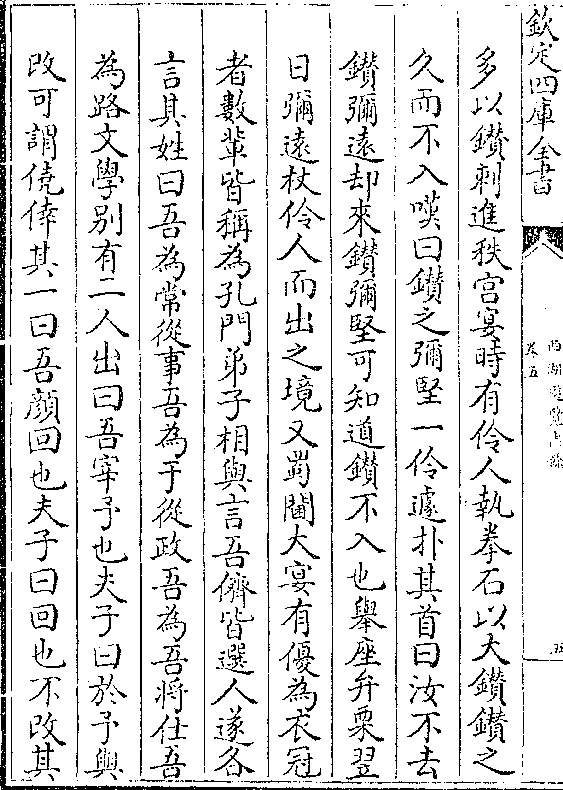 欽定四庫全書
西湖遊覽志餘
卷五
五
多以鑚刺進秩宫宴時有伶人執拳石以大鑚鑚之
久而不入嘆曰鑚之彌堅一伶遽扑其首曰汝不去
鑚彌遠却來鑚彌堅可知道鑚不入也舉座弁栗翌
日彌遠杖伶人而出之境又蜀閫大宴有優為衣冠
者數輩皆稱為孔門弟子相與言吾儕皆選人遂各
言其姓曰吾為常從事吾為于從政吾為吾將仕吾
為路文學别有二人出曰吾宰予也夫子曰於予與
改可謂僥倖其一曰吾顔回也夫子曰回也不改其